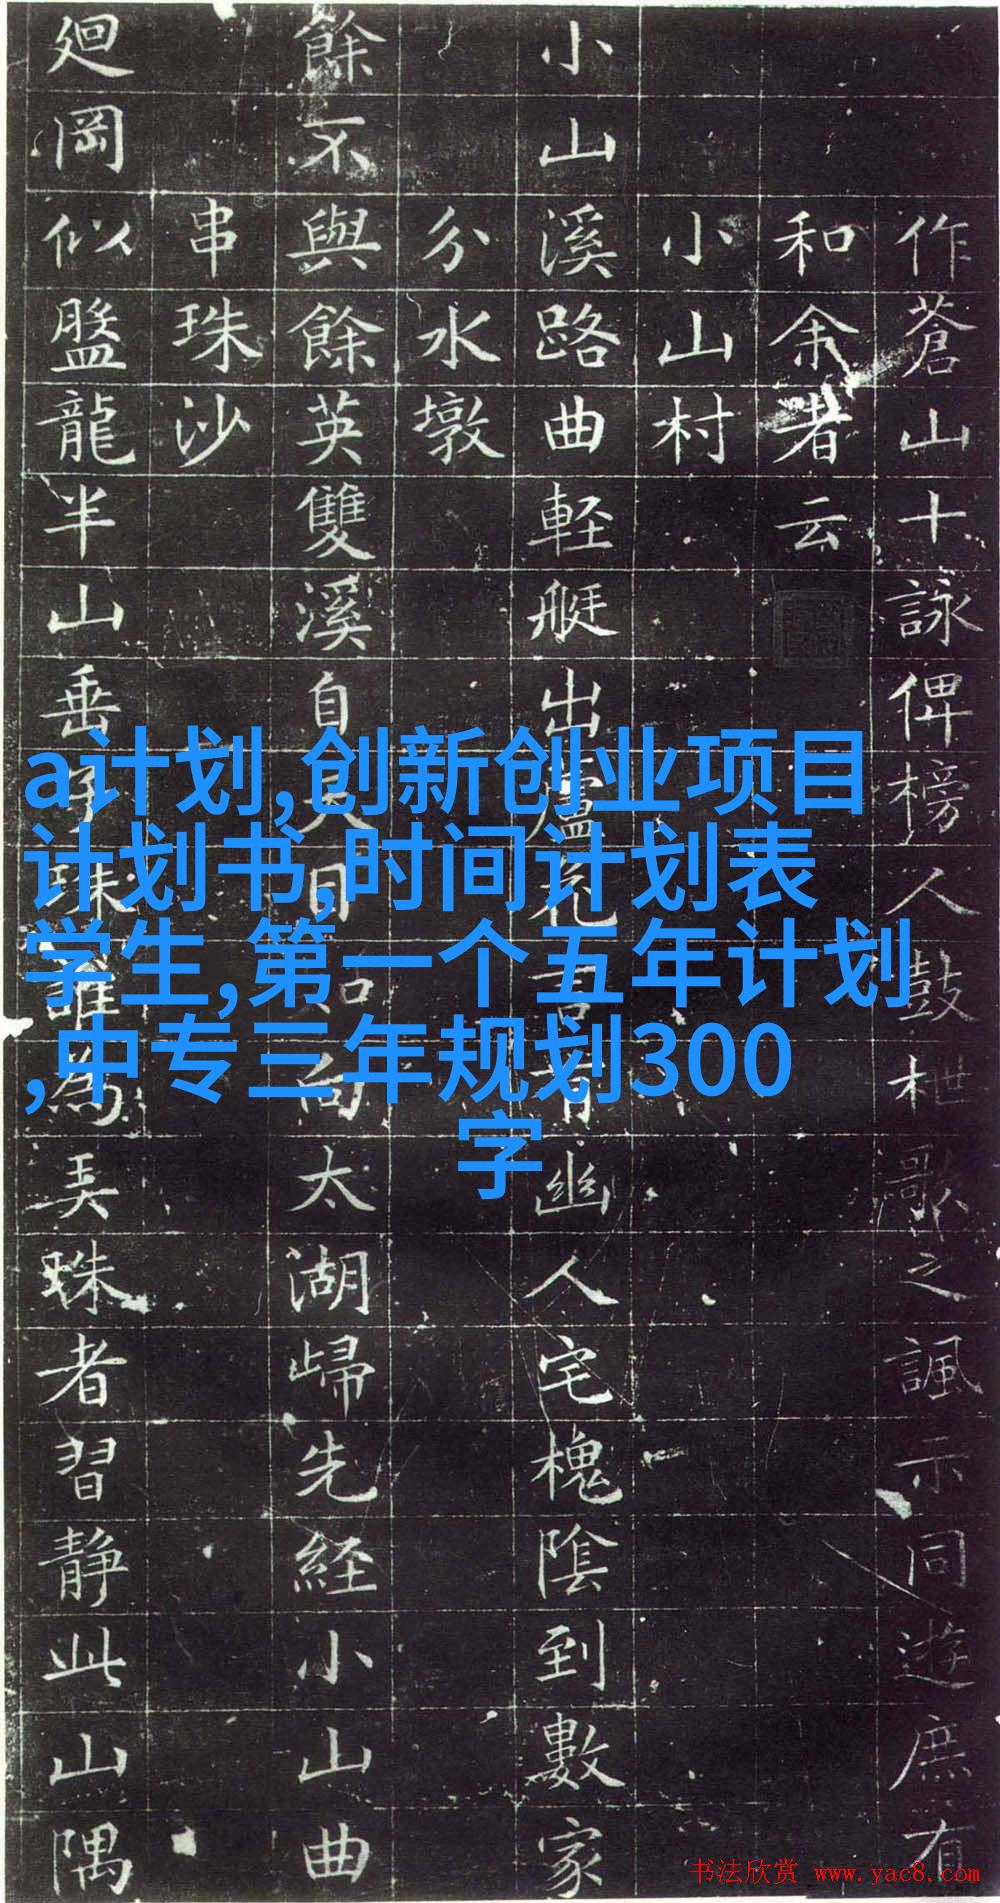 作蒼山十詠俾榜人鼓枻歌之諷示同遊庶有
和余者云
小山村
小山溪路曲軽艇出蘆花幽人宅槐陰到數家
分水墩
餘不與餘英雙溪自向太湖歸先経小山曲
串珠沙
廻岡似盤龍半山垂珠誰為弄珠者習静此山隅
a计划,创新创业项目
计划书,时间计划表
学生,第一个五年计划
,中专三年规划300
字
书法欣赏 www.yac8.com